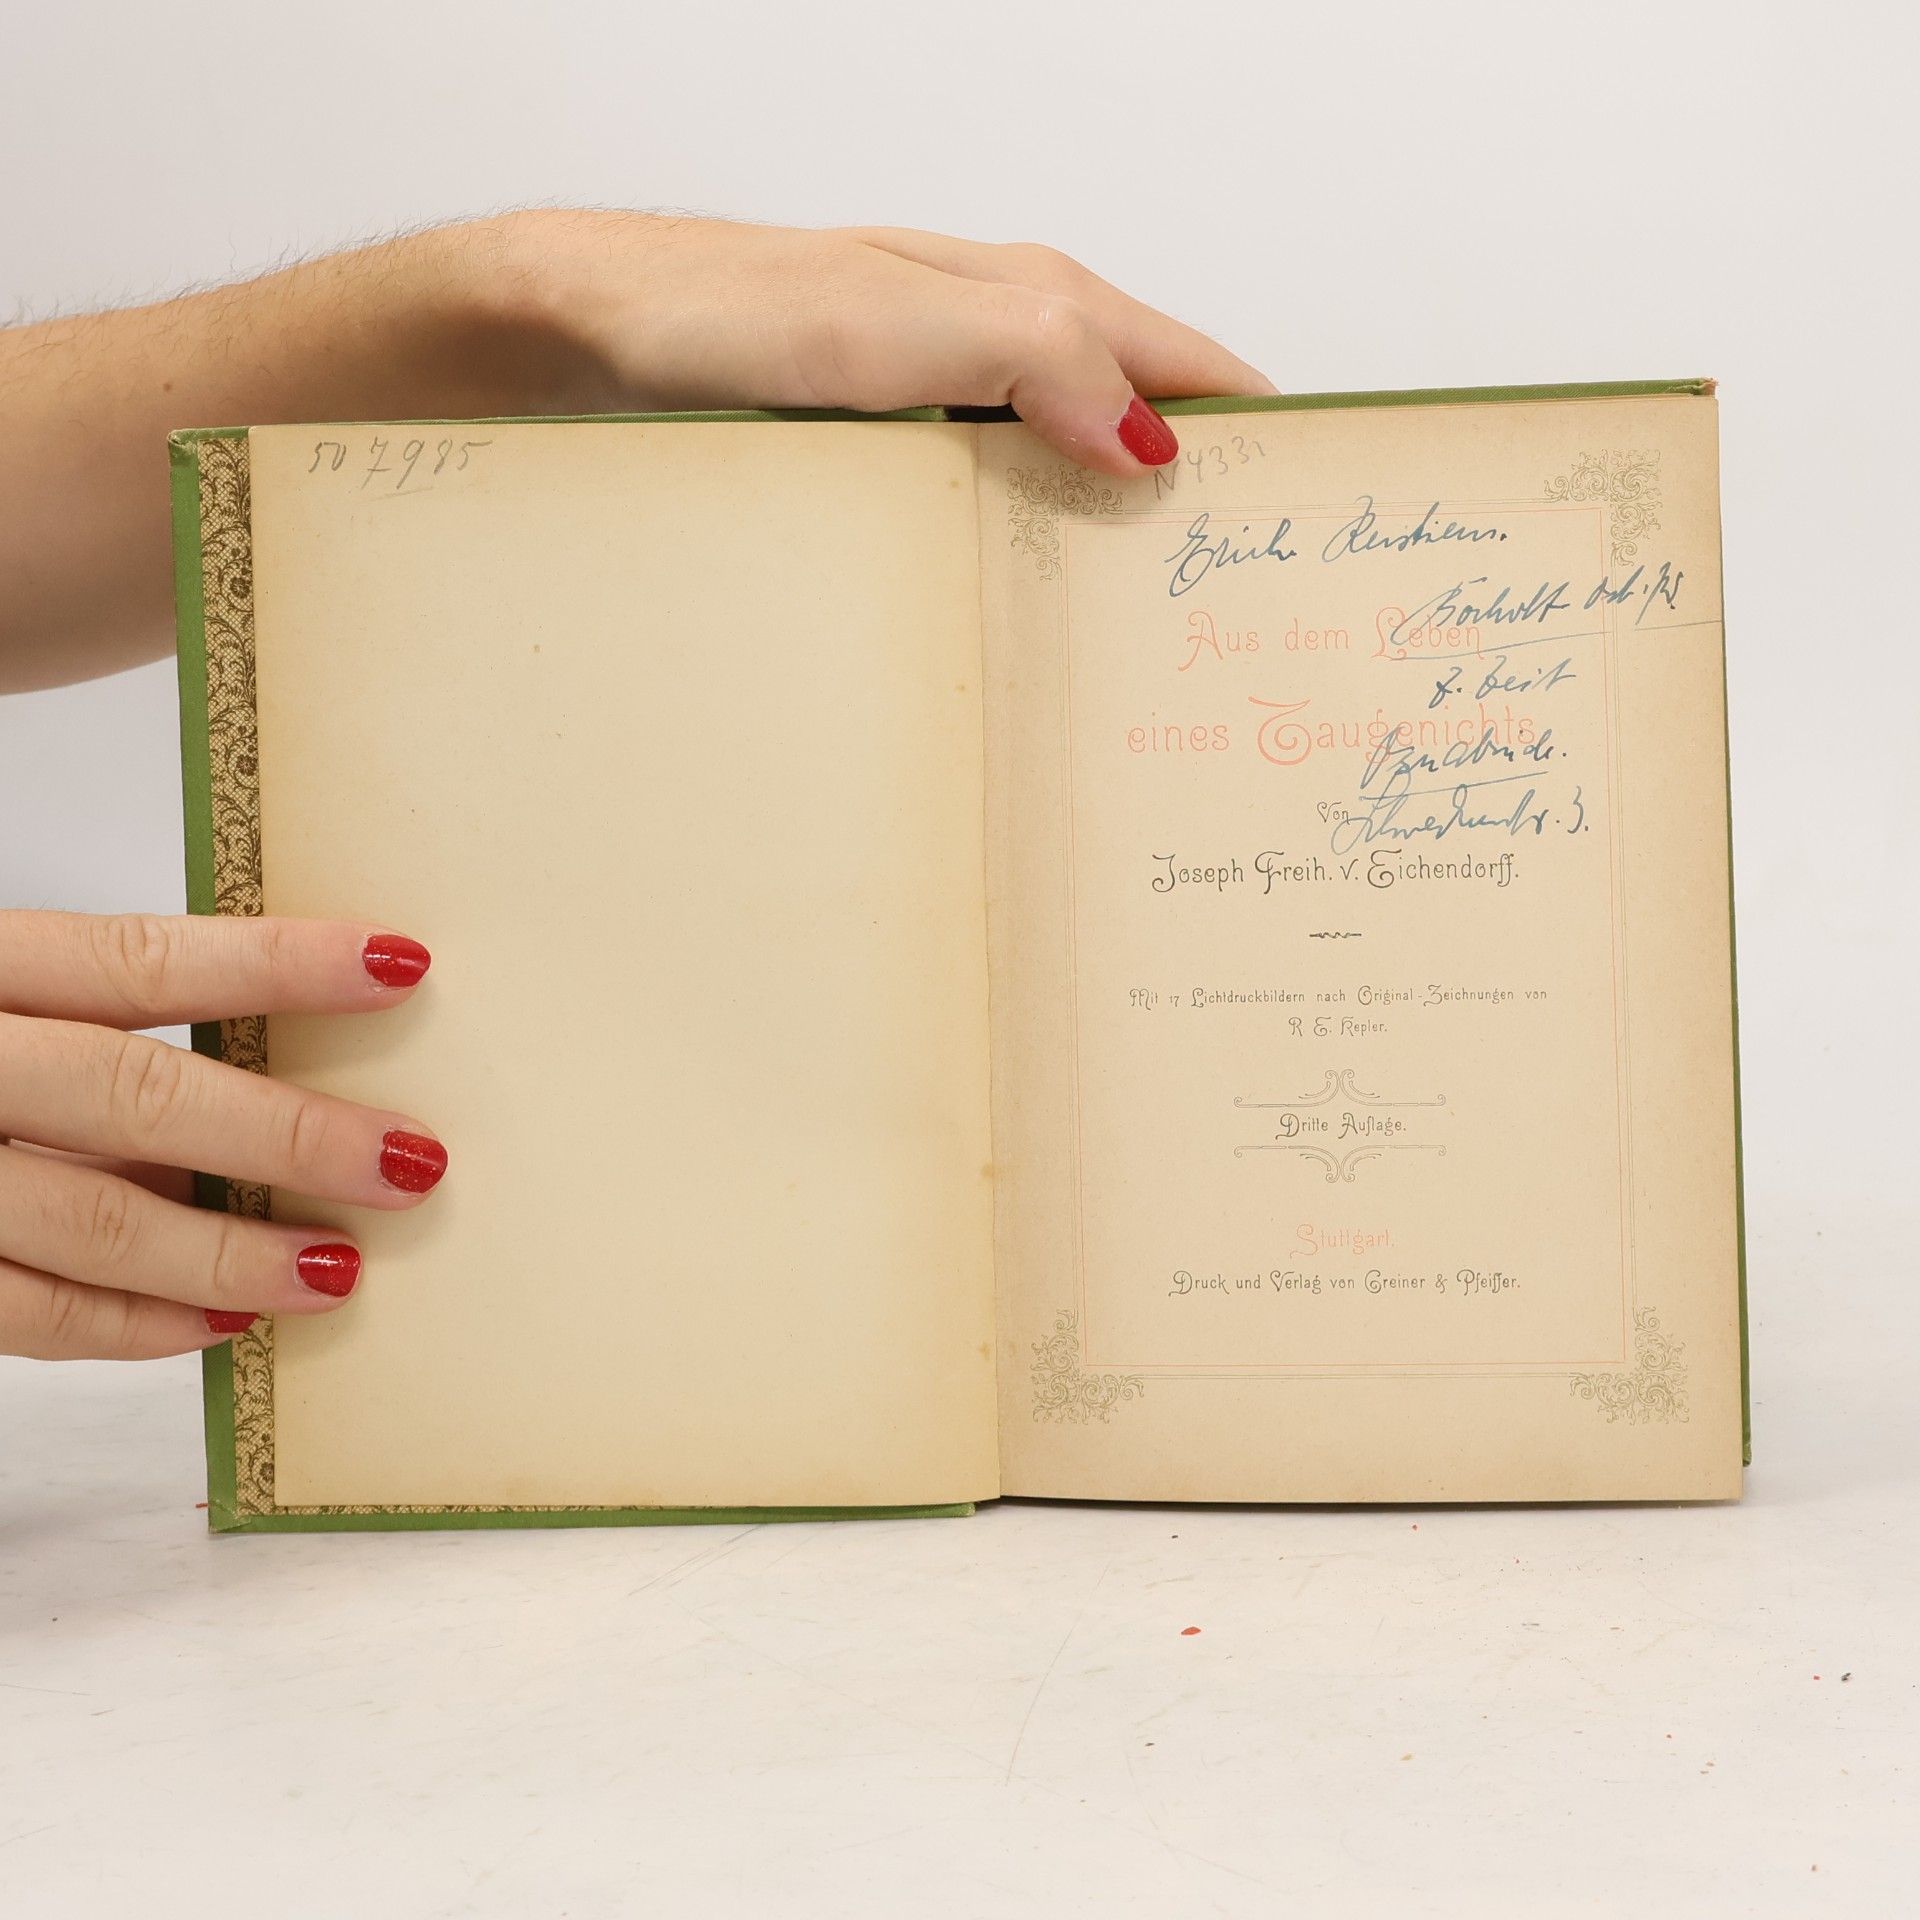 50 7985
N 4331
Erich
Bocholt
z. Zeit
Osnabrück.
3.
Aus dem Leben
eines Taugenichts
Von
Joseph Freih. v. Eichendorff.
Mit 17 Lichtdruckbildern nach Original-Zeichnungen von
R. E. Kepler.
Dritte Auflage.
Stuttgart.
Druck und Verlag von Greiner & Pfeiffer.